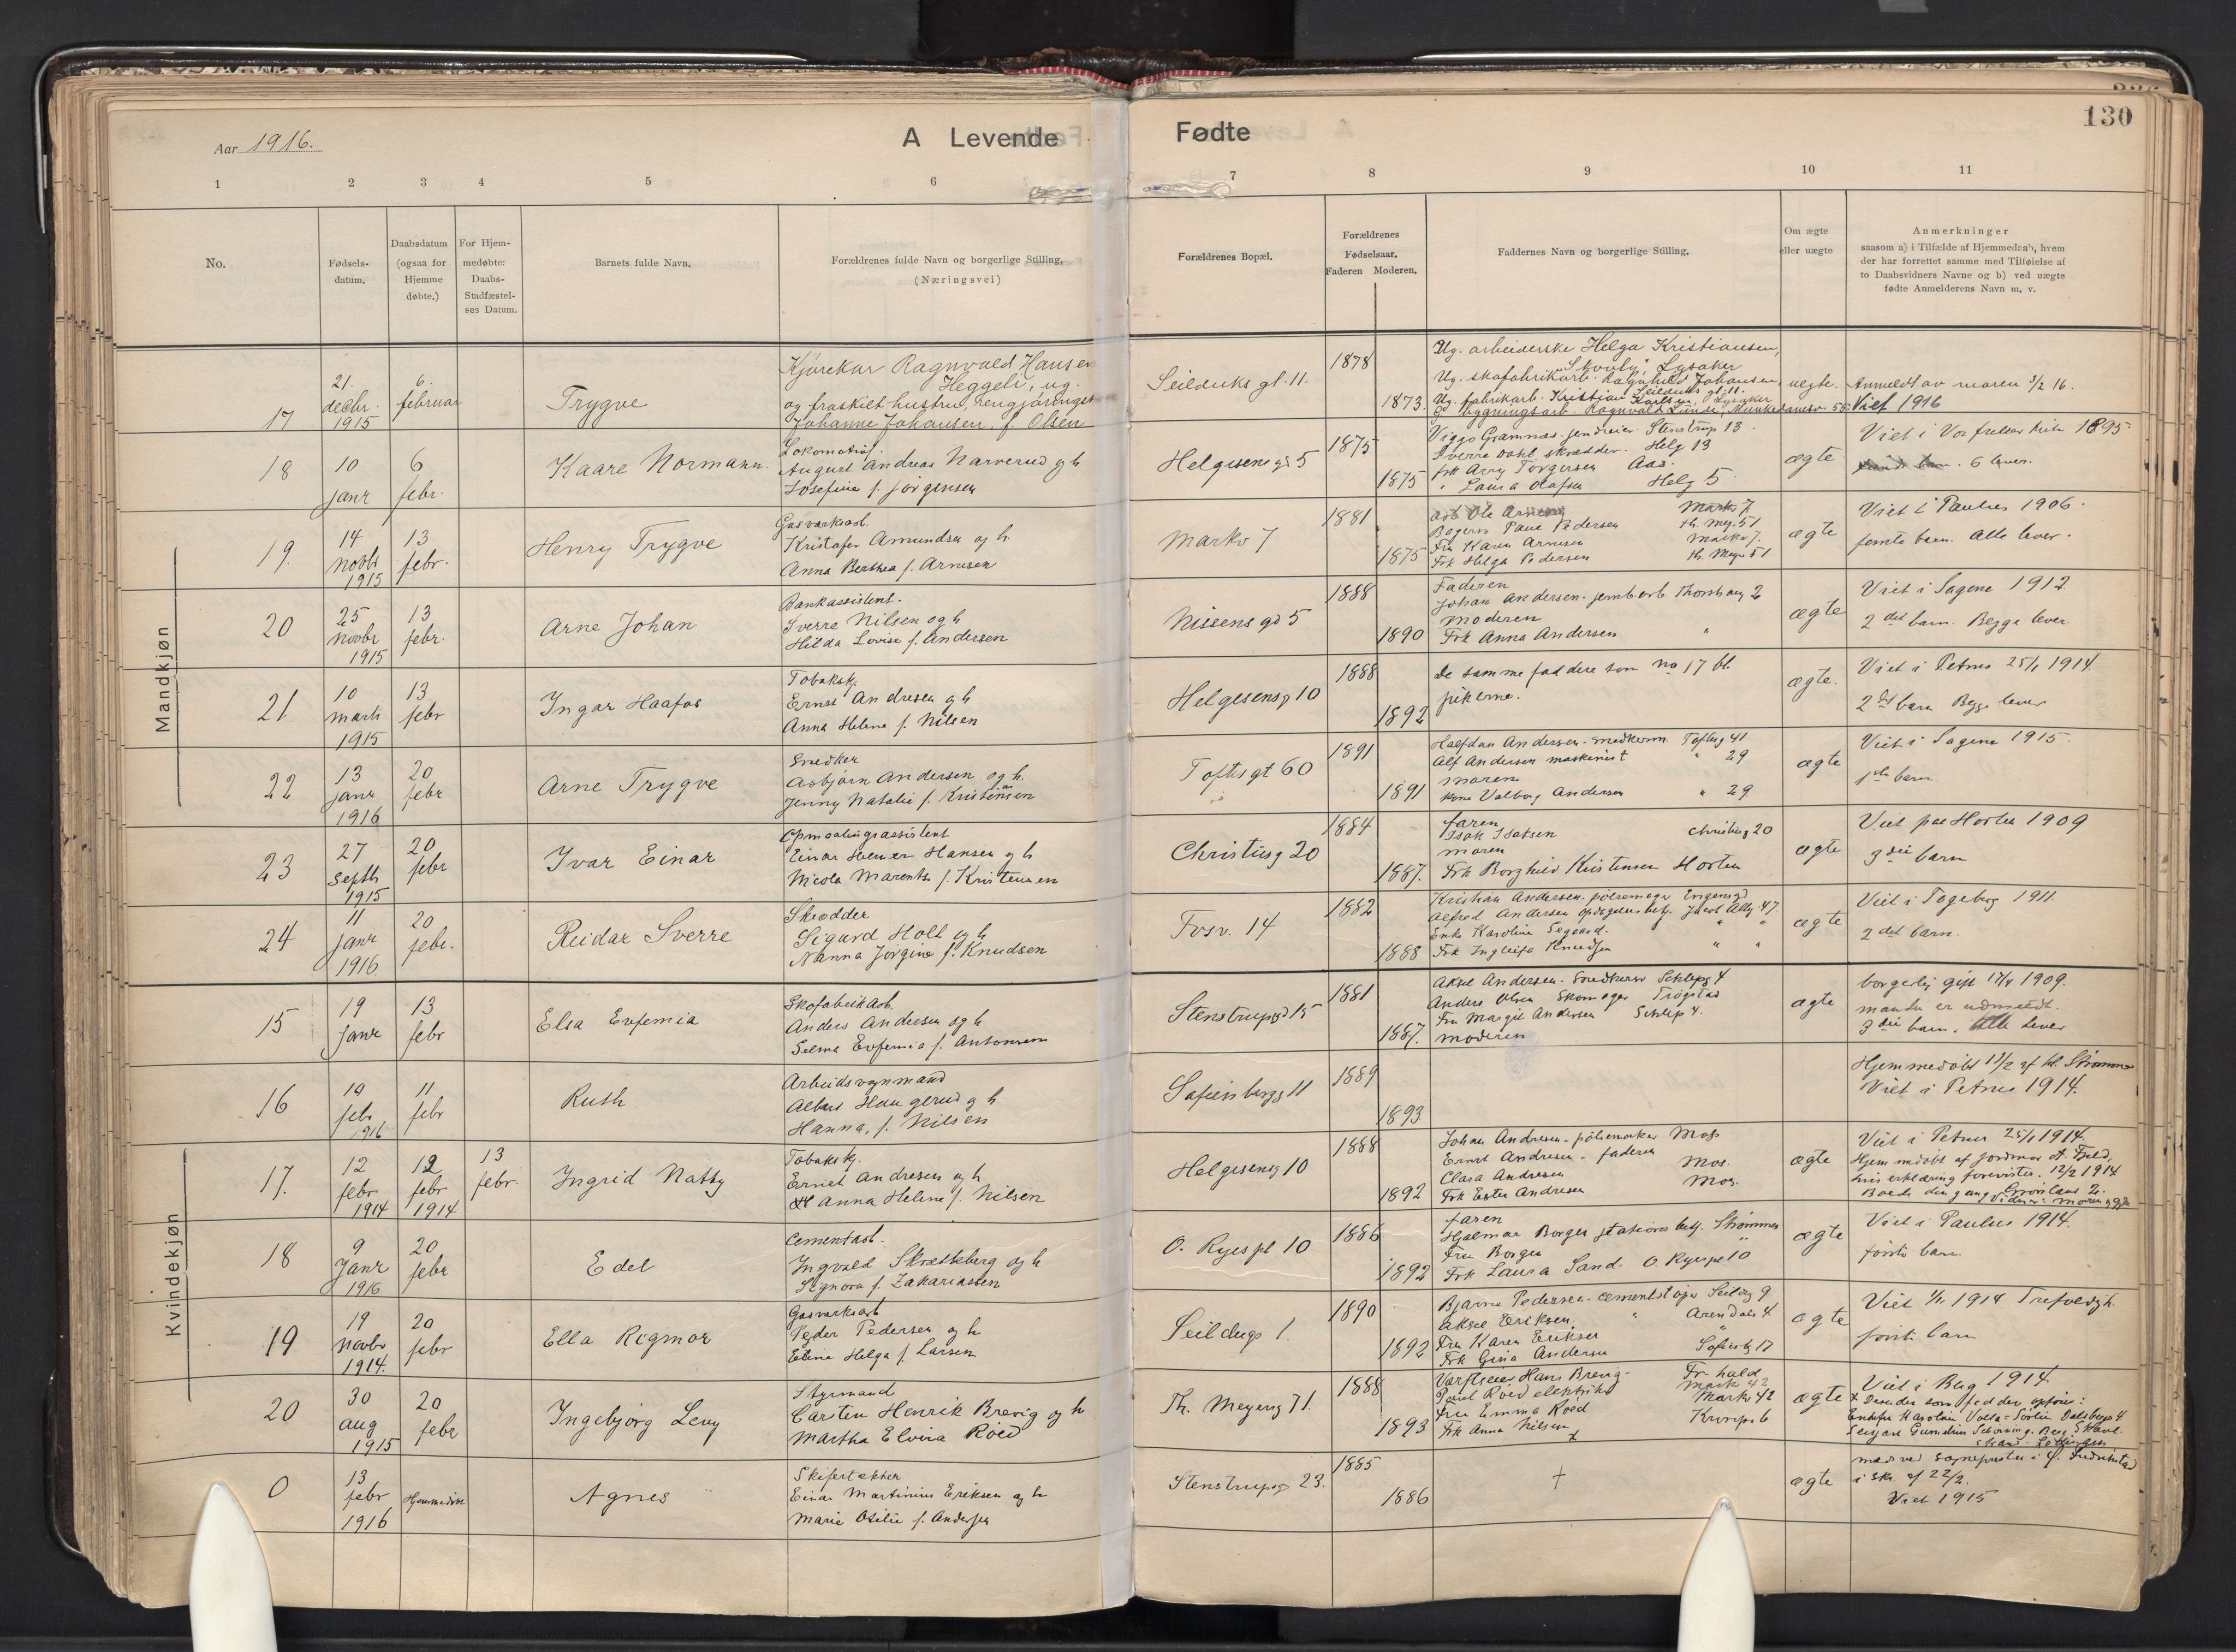 130
Aar 1916.
A Levende Fødte
1 2 3 4 5 6 7 8 9 10 11
No.
Fødsels-
datum.
Daabsdatum
(ogsaa for
Hjemme
døbte.)
For Hjem-
medøbte:
Daabs-
Stadfæstel-
ses Datum.
Barnets fulde Navn.
Forældrenes fulde Navn og borgerlige Stilling.
(Næringsvei)
Forældrenes Bopæl.
Forældrenes
Fødselsaar.
Faderen Moderen.
Faddernes Navn og borgerlige Stilling.
Om ægte
eller uægte
Anmerkninger
saasom a) i Tilfælde af Hjemmedaab, hvem
der har forrettet samme med Tilføielse af
to Daabsvidners Navne og b) ved uægte
fødte Anmelderens Navn m. v.
Mandkjøn
17
21. decbr. 1915
6. februar
Trygve
Kjørekar Ragnvald Hansen
Heggeli, ug.
og fraskilt hustru,
Johanne Johansen, f. Olsen
Seilduks gt. 11.
1878
1873.
Ug. arbeiderske Helga Kristiansen,
Lysaker
Ug. skofabrikarb. Ragnhild Johansen,
Seilduks gt. 11.
Ug. fabrikarb. Kristian Karlsen, Lysaker
Ragnvald Lunde, Munkedamsv. 55.
uegte.
Anmeldt av moren 3/2 16.
Viet 1916
18
10 janr
6 febr.
Kaare Normann.
Lokomotivf.
August Andreas Narverud og h
Josefine f. Jørgensen
Helgesensgd 5
1875
1875
Viggo Gramnæs. Stenstrup 13.
Sverre Dahl skrædder. Helg 13
frk Torgersen Aas.
" Laura Olafsen Helg 5
ægte
Viet i Vor frelser kirke 1895
6 lever.
19.
14 novbr 1915
13 febr.
Henry Trygve
Gasverksarb.
Kristofer Amundsen og h.
Anna Berthea f. Arnesen
Markv 7
1881
1875
arb Ole Arnesen Markv 7
Pedersen th. Meg. 51
Fru Karen Arnesen Markv 7.
Frk Helga Pedersen th. Meg 51
ægte
Viet i Paulus 1906.
femte barn. Alle lever.
20
25 novbr 1915
13 febr.
Arne Johan
Bankassistent.
Sverre Nilsen og h
Hilda Lovise f. Andersen
Nissens gd 5
1888
1890
Faderen
Johan Andersen. jernbarb 2
moderen
Frk Anna Andersen "
ægte
Viet i Sagene 1912
2det barn. Begge lever
21.
10 marts 1915
13 febr
Ingar Haafos
Tobaksk.
Ernst Andresen og h
Anna Helene f. Nilsen
Helgesensg 10
1888
1892
De samme faddere som no 17 bl.
pikerne.
ægte.
Viet i Petrus 25/1 1914.
2det barn Begge lever
22
13 janr 1916
20 febr
Arne Trygve
Snedker
Asbjørn Andersen og h.
Jenny Natalie f. Kristensen
Toftes gt 60
1891
1891
Halfdan Andersen. snedkersv. Toftesg 41
Alf Andersen maskinist " 29
moren
Kone Valborg Andersen " 29
ægte
Viet i Sagene 1915.
1ste barn
23
27 septb 1915
20 febr
Ivar Einar
Opmaalingsassistent
Einar Hansen og h
Nicola Marentse f. Kristensen
Christiesg 20
1884
1887.
faren
Isak Isaksen Christiesg 20
moren
Frk Borghild Kristensen Horten
ægte
Viet paa Horten 1909
3die barn
24
11 janr 1916
20 febr.
Reidar Sverre
Skrædder
Sigurd Holt og h
Nanna Jørgine f. Knudsen
Fosv. 14
1882
1888
Kristian Andersen. pølsemager
Alfred Andersen opdagelsesbetj. Jacob Allg. 47
Enke Karoline Segaard. " "
Frk Ingleifa Knudsen " "
ægte
Viet i Fageborg 1911.
2det barn.
Kvindekjøn
15
19 janr
13 febr
Elsa Evfemia
Skofabrikarb.
Anders Andersen og h
Selma Evfemia f. Antonsen
Stenstrupgd 15
1881
1887.
Aksel Andersen. Snedkersv Schlepsg 4
Anders Olsen Skomager Trøgstad
Fru Margit Andersen Schlep 4.
moderen
ægte
borgerlig gift 17/4 1909.
manden er udmeldt.
3die barn. Alle lever
16
19 febr 1916
11 febr
Ruth
Arbeidsvognmand
Albert Haugerud og h
Hanna, f. Nilsen
Sofienbergg 11
1889
1893
Hjemmedøbt 11/2 af kl. Strømme
Viet i Petrus 1914.
17.
12 febr 1914
12 febr 1914
13 febr.
Ingrid Natty
Tobaksk.
Ernst Andresen og h
Anna Helene f. Nilsen
Helgesensg 10
1888
1892
Johan Andresen. pølsemaker Moss
Ernst Andresen. faderen
Clara Andresen Mos.
Frk Ester Andresen Mos.
ægte
Viet i Petrus 25/1 1914.
Hjemmedøbt af jordmor A. Fjeld,
hvis erklæring forevistes. 12/2 1914
Boede dengang Grønland 20.
18
9 janr 1916
20 febr
Edel
Cementarb.
Ingvald Skratteberg og h
Signora f. Zakariassen
O. Ryes pl 10
1886
1892
faren
Hjalmar Borger stationsbetj. Strømmen
Fru Borger "
Frk Laura Sand. O. Ryespl 10
ægte
Viet i Paulus 1914.
første barn.
19
19 novbr 1914.
20 febr
Ella Rigmor
Gasverksarb
Peder Pedersen og h
Eline Helga f. Larsen
Seildugs 1.
1890
1892
Bjarne Pedersen. cementstøper Seildsg 9
Aksel Eriksen. " Arendals 4
Fru Karen Eriksen "
Frk Gina Andersen Sofienbg 17
ægte
Viet 1914 Trefoldigh.
første barn
20
30 aug 1915
20 febr
Ingebjørg Levy
Styrmand
Carsten Henrik Brevig og h
Martha Elvira Röed
Th. Meyersg 71.
1888
1893
Værftseier Hans Brevig. Fr. hald
Paul Röed elektriker Mark 42
Fru Emma Röed Markv 42
Frk Anna Nilsen x Kronpr 6
ægte
Viet i Berg 1914.
x Desuden som fadder opføres:
0
13 febr 1916
Hjemmedøbt
Agnes
Skifertækker
Einar Martinius Eriksen og h
Marie Otilie f. Andersen
Stenstrupsg 23.
1885
1886
†
ægte
sognepresten i Ø. Fredrikstad
i skr. af 22/2.
Viet 1915